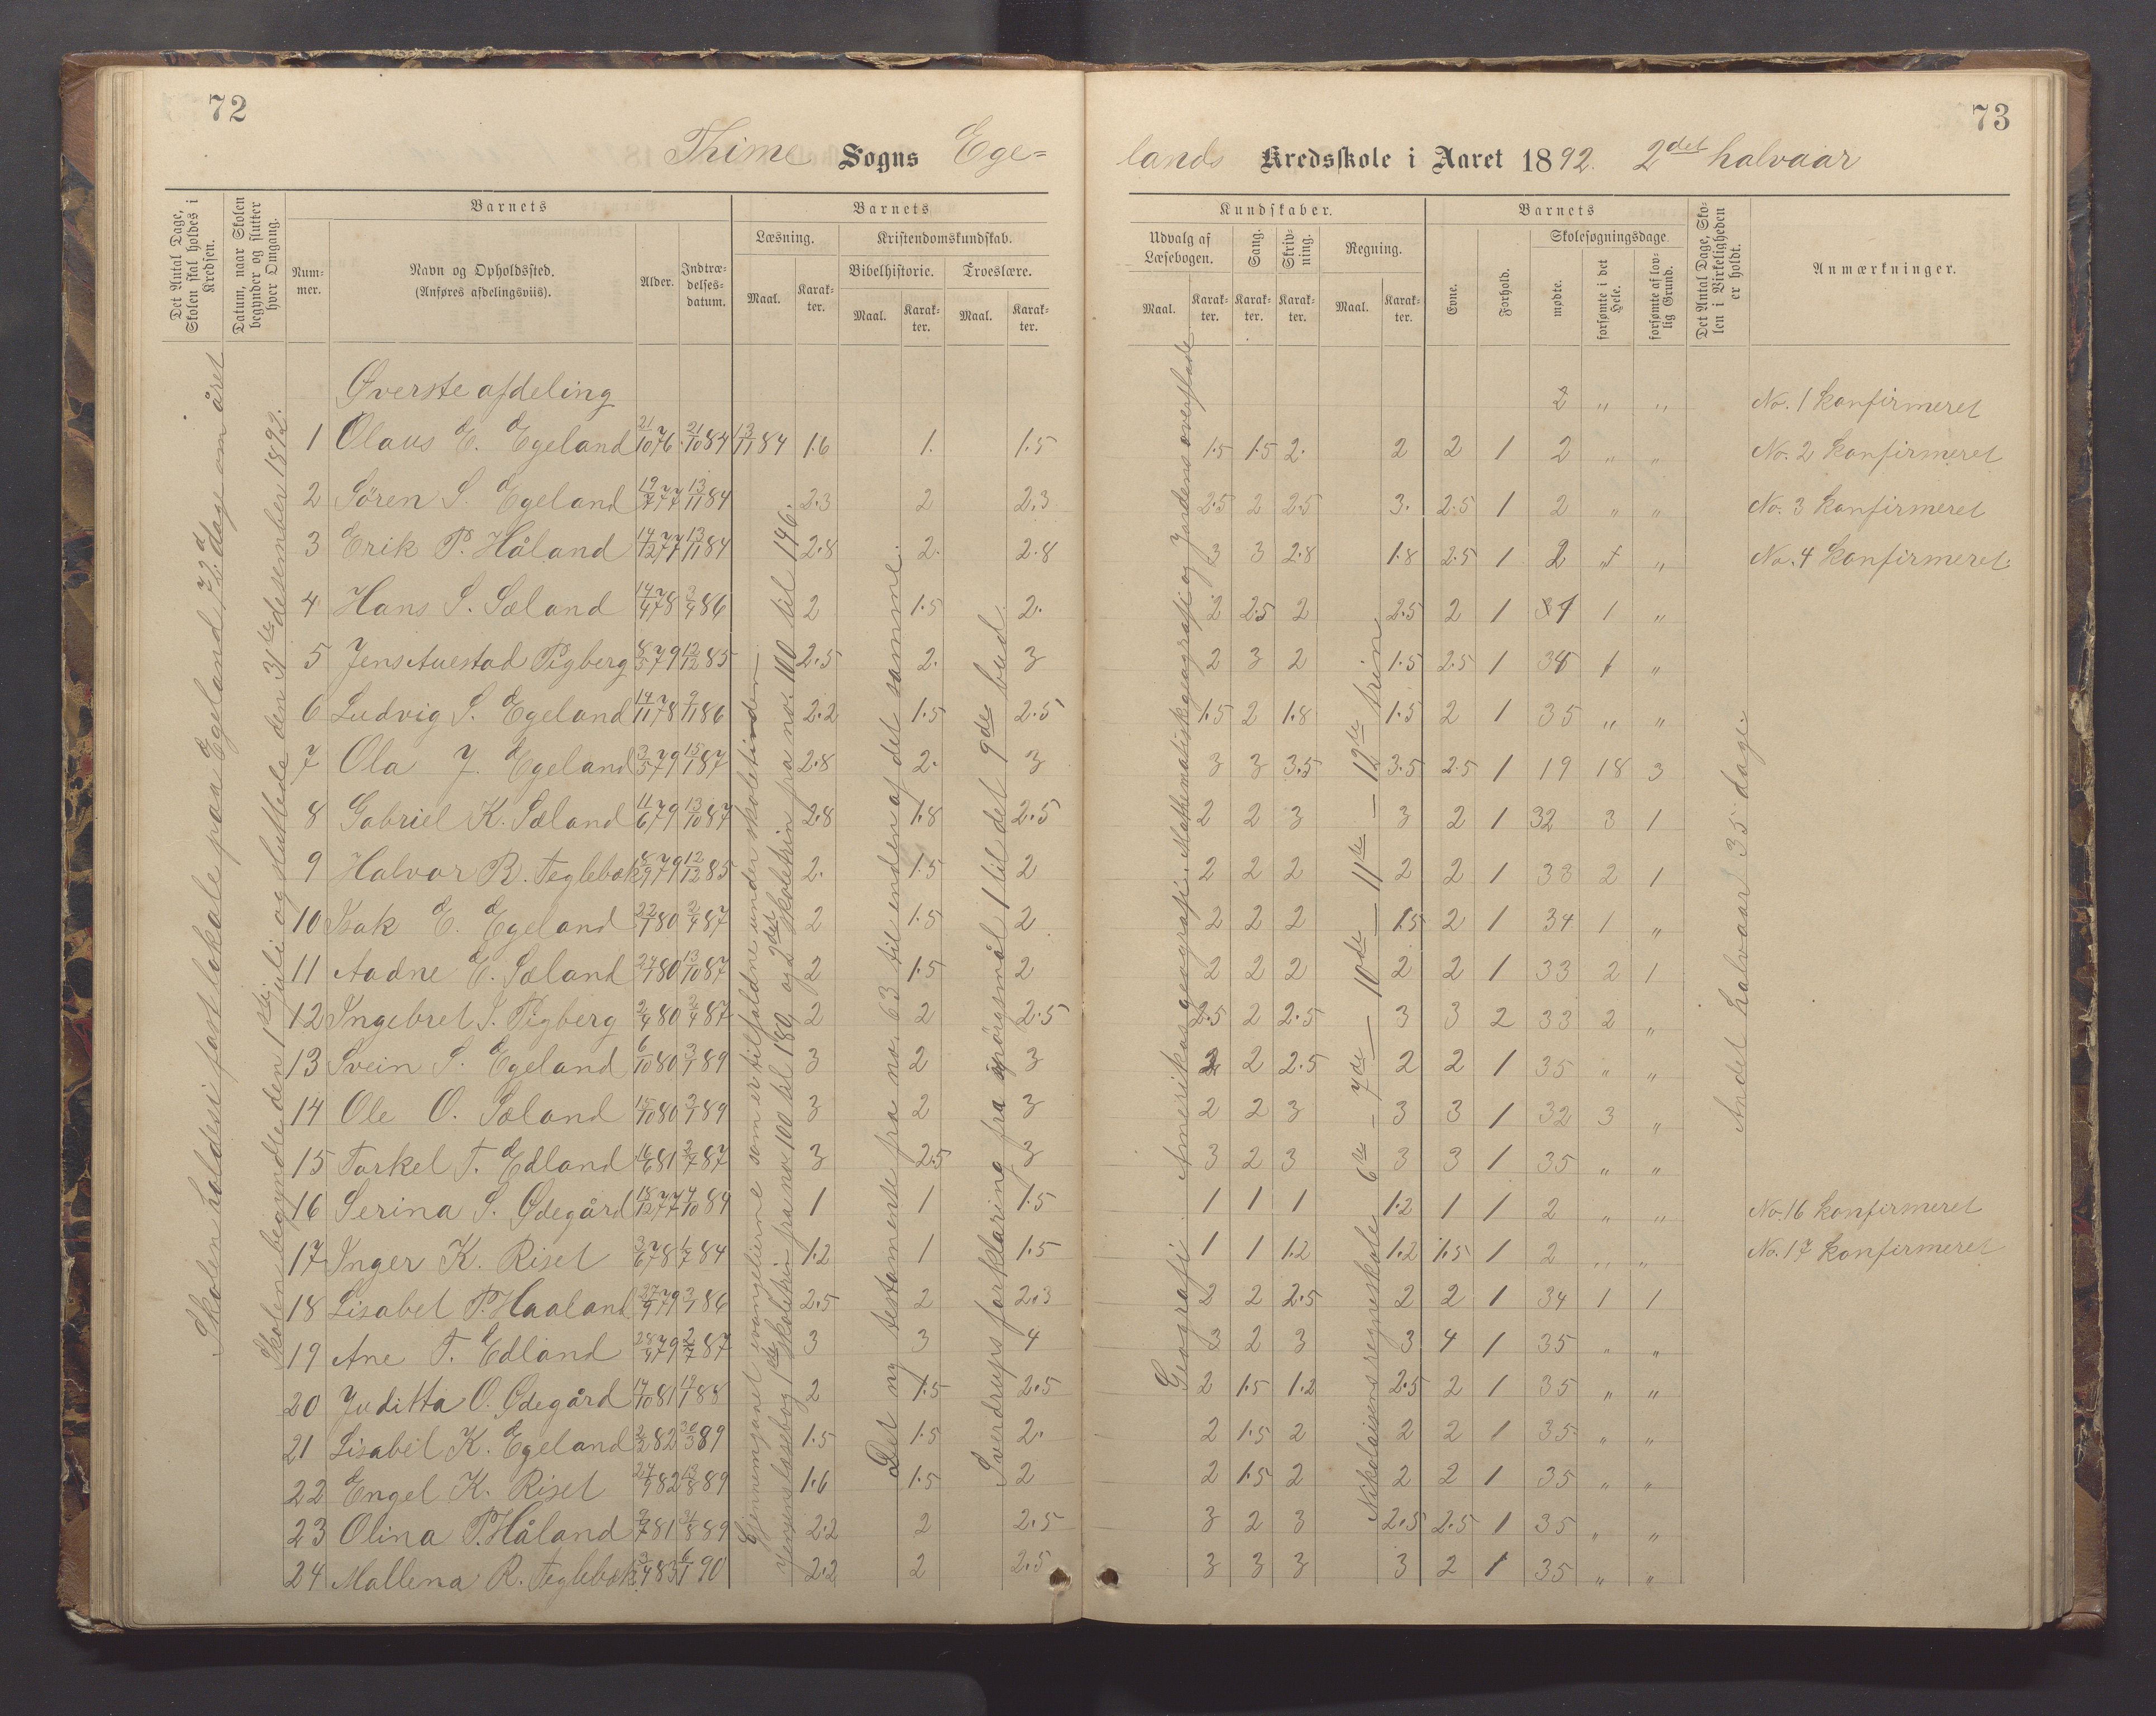 72
73
Thime Sogns Ege=
lands Kredsskole i Aaret 1892. 2det halvaar
Det Antal Dage, Skolen skal holdes i Kredsen.
Datum, naar Skolen begynder og slutter hver Omgang.
Barnets
Num-mer.
Navn og Opholdssted. (Anføres afdelingsviis).
Alder.
Indtræ-delses-datum.
Barnets
Læsning.
Maal.
Karak-ter.
Kristendomskundskab.
Bibelhistorie.
Maal.
Karak-ter.
Troeslære.
Maal.
Karak-ter.
Kundskaber.
Udvalg af Læsebogen.
Maal.
Karak-ter.
Sang.
Karak-ter.
Skriv-ning.
Karak-ter.
Regning.
Maal.
Karak-ter.
Barnets
Evne.
Forhold.
Skolesøgningsdage
mødte.
forsømte i det Hele.
forsømte af lov-lig Grund.
Det Antal Dage, Sko-len i Virkeligheden er holdt.
Anmærkninger.
Skolen holdes i fast lokale paa Egeland, 72 dage om året
Skolen begyndte den 1ste juli og sluttede den 31te desember 1892.
Gjennemgaaet evangelierne som er tilfaldne under skoletiden —
Jensens læsebog 1ste skoletrin fra no 100 til 180 og 2det skoletrin fra no. 100 til 146.
Det ny testamente fra no. 63 til enden af det samme.
Sverdrups forklaring fra spörsmål 1 til det 9de bud
Geografi. Amerikas geografi. Mathematisk geografi og Jordens overflade
Nikolaisens regneskole 6te — 7de — 10de — 11te — 12te trin
Andet halvaar 35 dage.
Øverste afdeling 2 " " No. 1 konfirmeret
1 Olaus E. Egeland 21/10 76 21/10 84 13/11 84 1.6 1. 1.5 1.5 1.5 2. 2 2 1 2 " " No. 2 konfirmeret
2 Sören S. Egeland 19/7 77 13/11 84 2.3 2 2.3 2.5 2 2.5 3. 2.5 1 2 " " No. 3 konfirmeret
3 Erik P. Håland 14/12 77 13/11 84 2.8 2. 2.8 3 3 2.8 1.8 2.5 1 2 " " No. 4 konfirmeret.
4 Hans S. Sæland 14/4 78 3/4 86 2 1.5 2. 2 2.5 2 2.5 2 1 1 "
5 Jens Auestad Pigberg 8/5 79 12/12 85 2.5 2. 3 2 3 2 1.5 2.5 1 34 1 "
6 Ludvig S. Egeland 14/11 78 9/11 86 2.2 1.5 2.5 1.5 2 1.8 1.5 2 1 35 " "
7 Ola J. Egeland 3/5 79 15/1 87 2.8 2. 3 3 3 3.5 3.5 2.5 1 19 18 3
8 Gabriel K. Sæland 11/6 79 13/10 87 2.8 1.8 2.5 2 2 3 3 2 1 32 3 1
9 Halvor R. Teglebak 8/9 79 12/12 85 2. 1.5 2 2 2 2 2 2 1 33 2 1
10 Isak E. Egeland 22/1 80 2/4 87 2 1.5 2 2 2 2 1.5 2 1 34 1 "
11 Aadne E. Sæland 24/1 80 13/10 87 2 1.5 2 2 2 2 2 2 1 33 2 1
12 Ingebret J. Pigberg 2/4 80 2/4 87 2 2 2.5 2.5 2 2.5 3 3 2 33 2 "
13 Svein S. Egeland 6/10 80 3/1 89 3 2 3 2 2 2.5 2 2 1 35 " "
14 Ole O. Sæland 15/10 80 3/1 89 3 2 3 2 2 3 3 3 1 32 3 "
15 Torkel T. Edland 16/6 81 2/7 87 3 2.5 3 3 2 3 3 3 1 35 " "
16 Serina S. Ødegård 18/12 77 4/10 84 1 1 1.5 1 1 1 1.2 1 1 2 " " No. 16 konfirmeret
17 Inger K. Riset 3/6 78 1/7 84 1.2 1 1.5 1 1 1.2 1.2 1.5 1 2 " " No. 17 konfirmeret
18 Lisabet P. Haaland 27/9 79 3/1 86 2.5 2 2.3 2 2 2.5 2 2 1 34 1 1
19 Ane T. Edland 28/4 79 2/7 87 3 3 4 3 2 3 3 4 1 35 " "
20 Juditta O. Ødegård 14/10 81 19/1 88 2 1.5 2.5 2 1.5 1.2 2.5 2 1 35 " "
21 Lisabet K. Egeland 2/2 82 30/3 89 1.5 1.5 2. 2 1.5 2 2 2 1 35 " "
22 Engel K. Riset 24/9 82 13/8 89 1.6 1.5 2 2 1.5 2 2 2 1 35 " "
23 Olina P. Håland 3/7 81 31/8 89 2.2 2 2.5 3 2 3 2.5 2.5 1 35 " "
24 Mallena R. Teglebak 3/4 83 6/1 90 2.2 2 2.5 3 3 3 3 2 1 35 " "